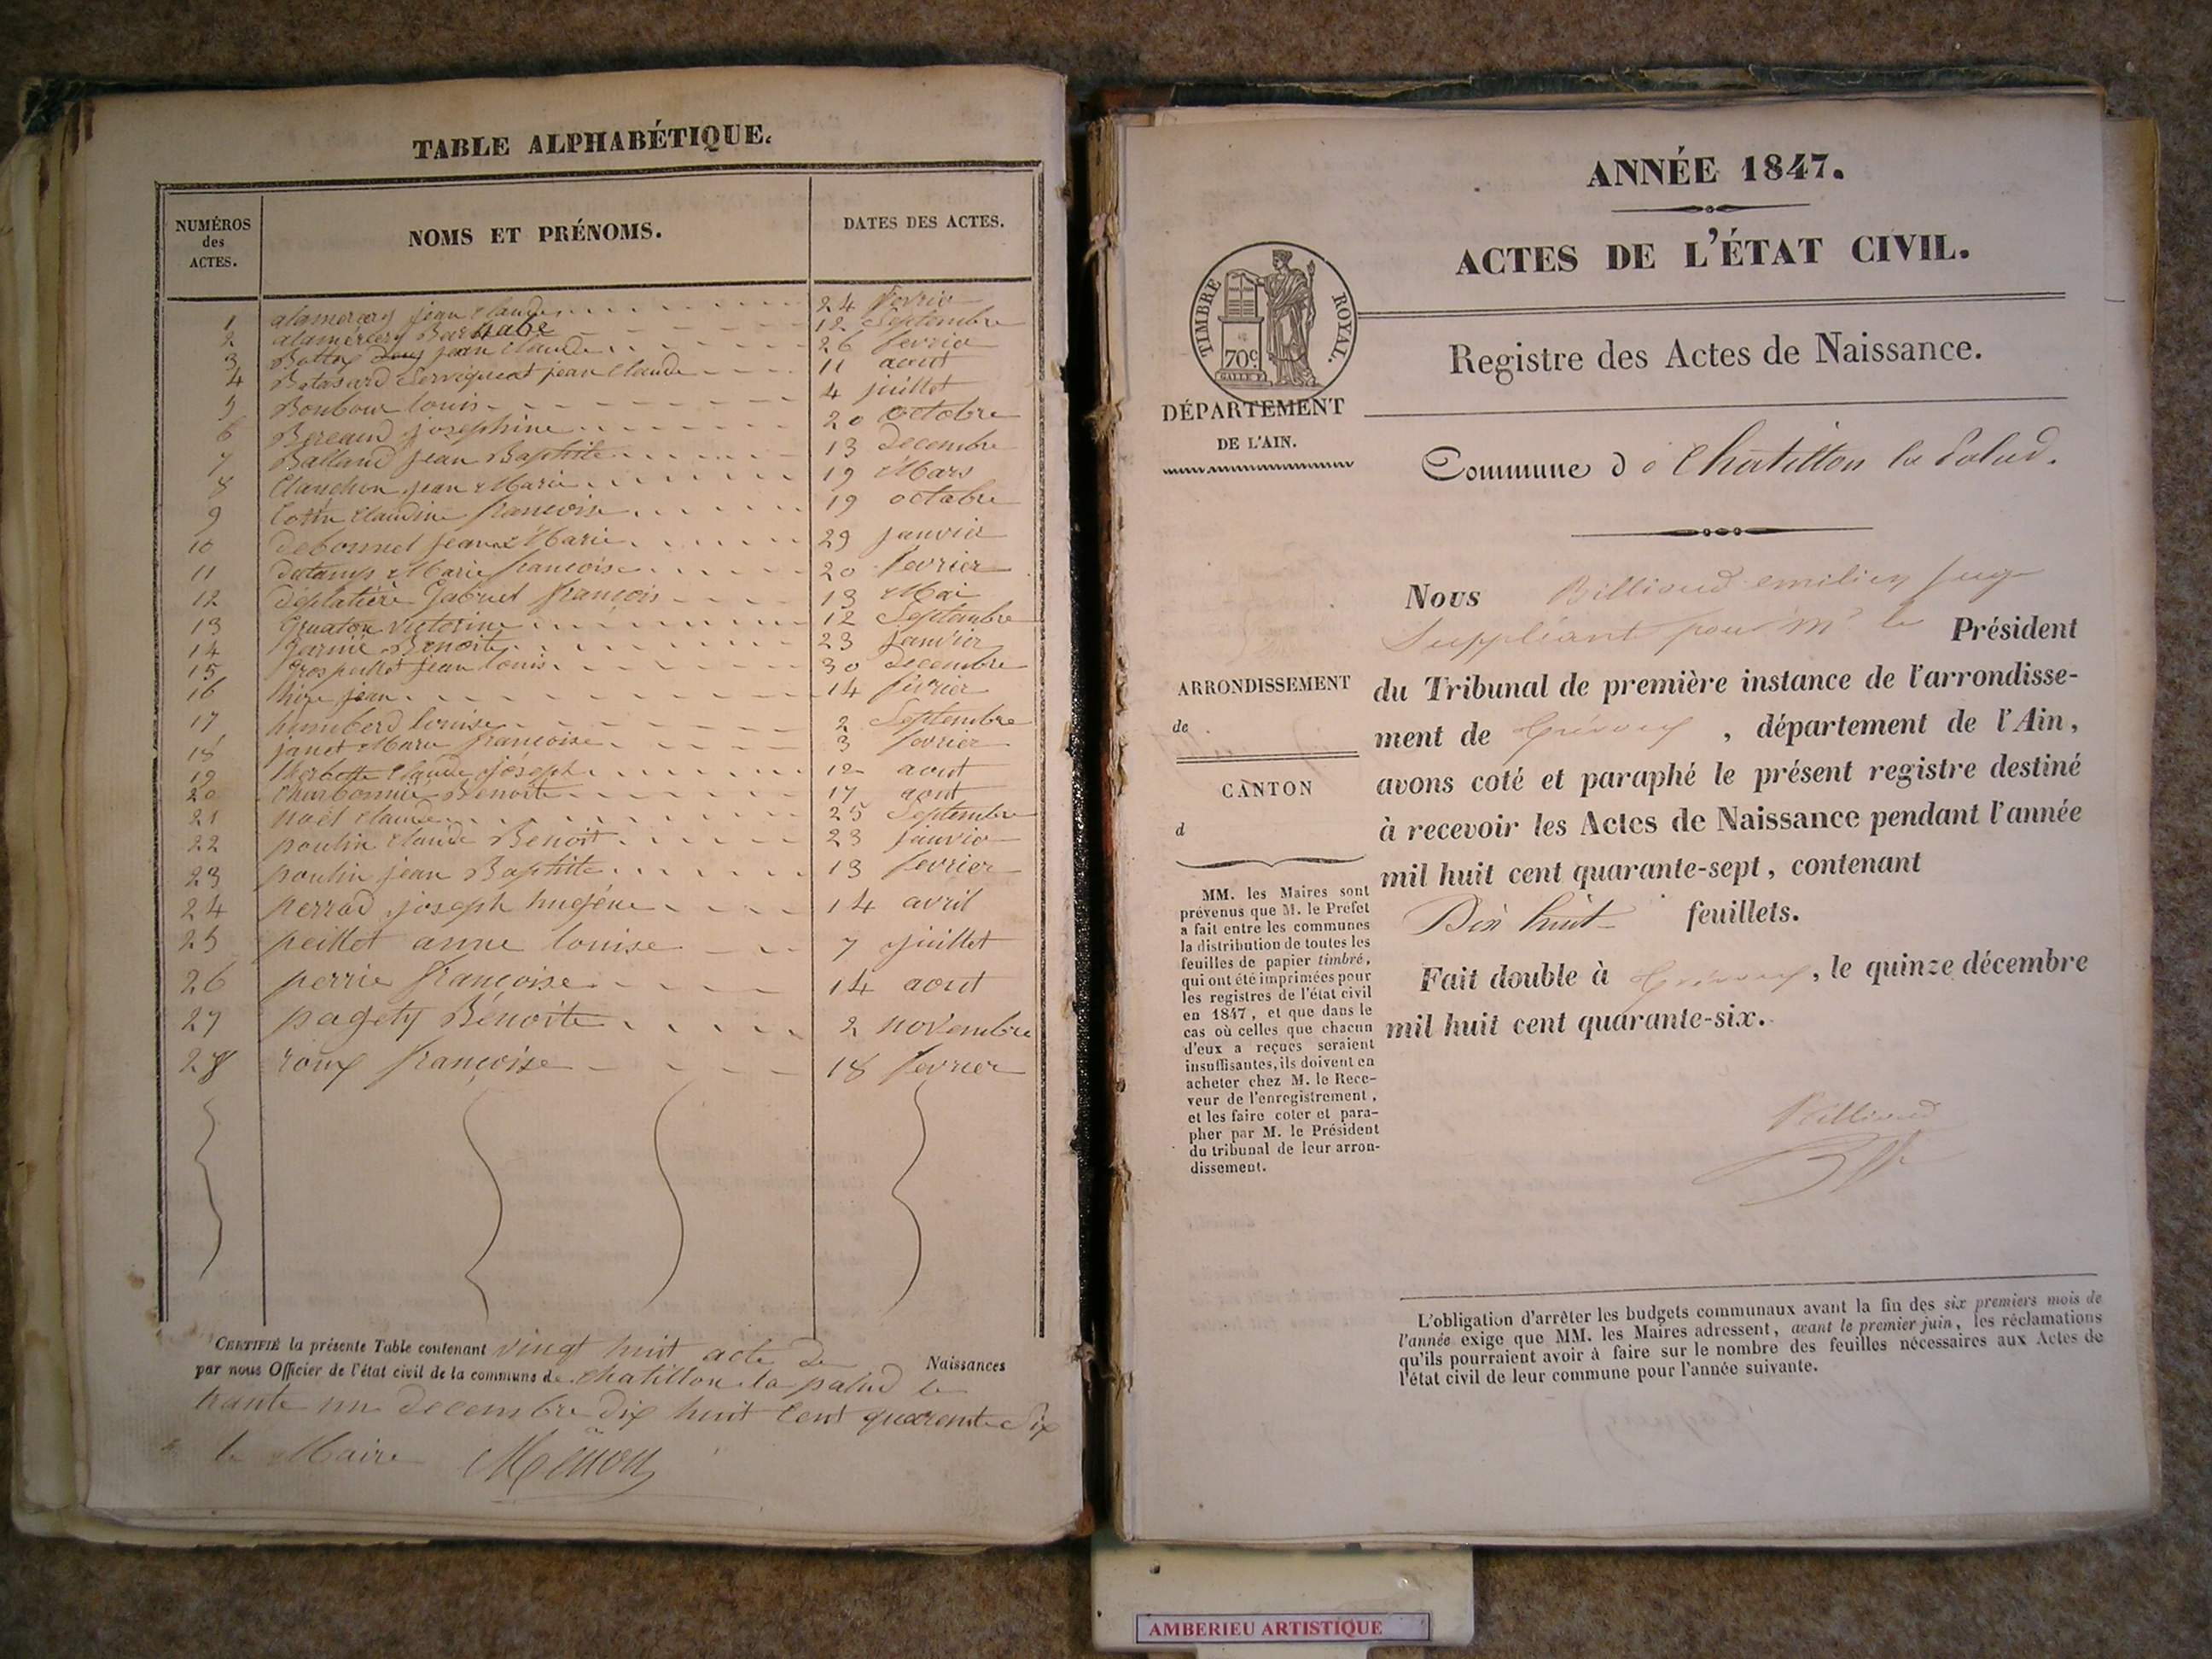 TABLE ALPHABÉTIQUE.
NUMÉROS des ACTES.
NOMS ET PRÉNOMS.
DATES DES ACTES.
1 alamercery jean Claude 24 fevrier
2 alamercery Barnabé 12 Septembre
3 jean Claude 26 fevrier
4 jean Claude 11 aout
5 louis 4 juillet
6 Bereaud josephine 20 octobre
7 Balland jean Baptiste 13 Decembre
8 Clauchon jean Marie 19 Mars
9 Cottin Claudine francoise 19 octobre
10 debonnel jeanne Marie 29 janvier
11 Marie francoise 20 fevrier
12 déplatière Gabriel françois 13 Mai
13 Gruaton victorine 12 Septembre
14 Benoite 23 janvier
15 grospeillet jean louis 30 decembre
16 jean 14 fevrier
17 humberd louise 2 Septembre
18 janet Marie francoise 3 fevrier
19 Claude joseph 12 aout
20 Charbonnié Benoite 17 aout
21 noël Claude 25 Septembre
22 poulin Claude Benoit 23 janvier
23 poulin jean Baptiste 13 fevrier
24 perrod joseph hugéne 14 avril
25 peillot anne louise 7 juillet
26 perrie françoise 14 aout
27 pagety Bénoite 2 novembre
28 roux françoise 18 fevrier
CERTIFIÉ la présente Table contenant vingt huit acte de Naissances
par nous Officier de l'état civil de la commune de chatillon la palud le
trante un decembre dix huit cent quarente Six
le Maire Menon
ANNÉE 1847.
ACTES DE L'ÉTAT CIVIL.
TIMBRE ROYAL.
70c
Registre des Actes de Naissance.
DÉPARTEMENT
DE L'AIN.
Commune d e Chatillon la Palud.
Nous Billioud emilien juge
Suppléant pour Mr le Président
du Tribunal de première instance de l'arrondisse-
ment de Trévoux, département de l'Ain,
avons coté et paraphé le présent registre destiné
à recevoir les Actes de Naissance pendant l'année
mil huit cent quarante-sept, contenant
Dix huit feuillets.
Fait double à Trévoux, le quinze décembre
mil huit cent quarante-six.
Billioud
ARRONDISSEMENT
de
CANTON
d
MM. les Maires sont
prévenus que M. le Prefet
a fait entre les communes
la distribution de toutes les
feuilles de papier timbré,
qui ont été imprimées pour
les registres de l'état civil
en 1847, et que dans le
cas où celles que chacun
d'eux a reçues seraient
insuffisantes, ils doivent en
acheter chez M. le Rece-
veur de l'enregistrement,
et les faire coter et para-
pher par M. le Président
du tribunal de leur arron-
dissement.
L'obligation d'arrêter les budgets communaux avant la fin des six premiers mois de
l'année exige que MM. les Maires adressent, avant le premier juin, les réclamations
qu'ils pourraient avoir à faire sur le nombre des feuilles nécessaires aux Actes de
l'état civil de leur commune pour l'année suivante.
AMBERIEU ARTISTIQUE